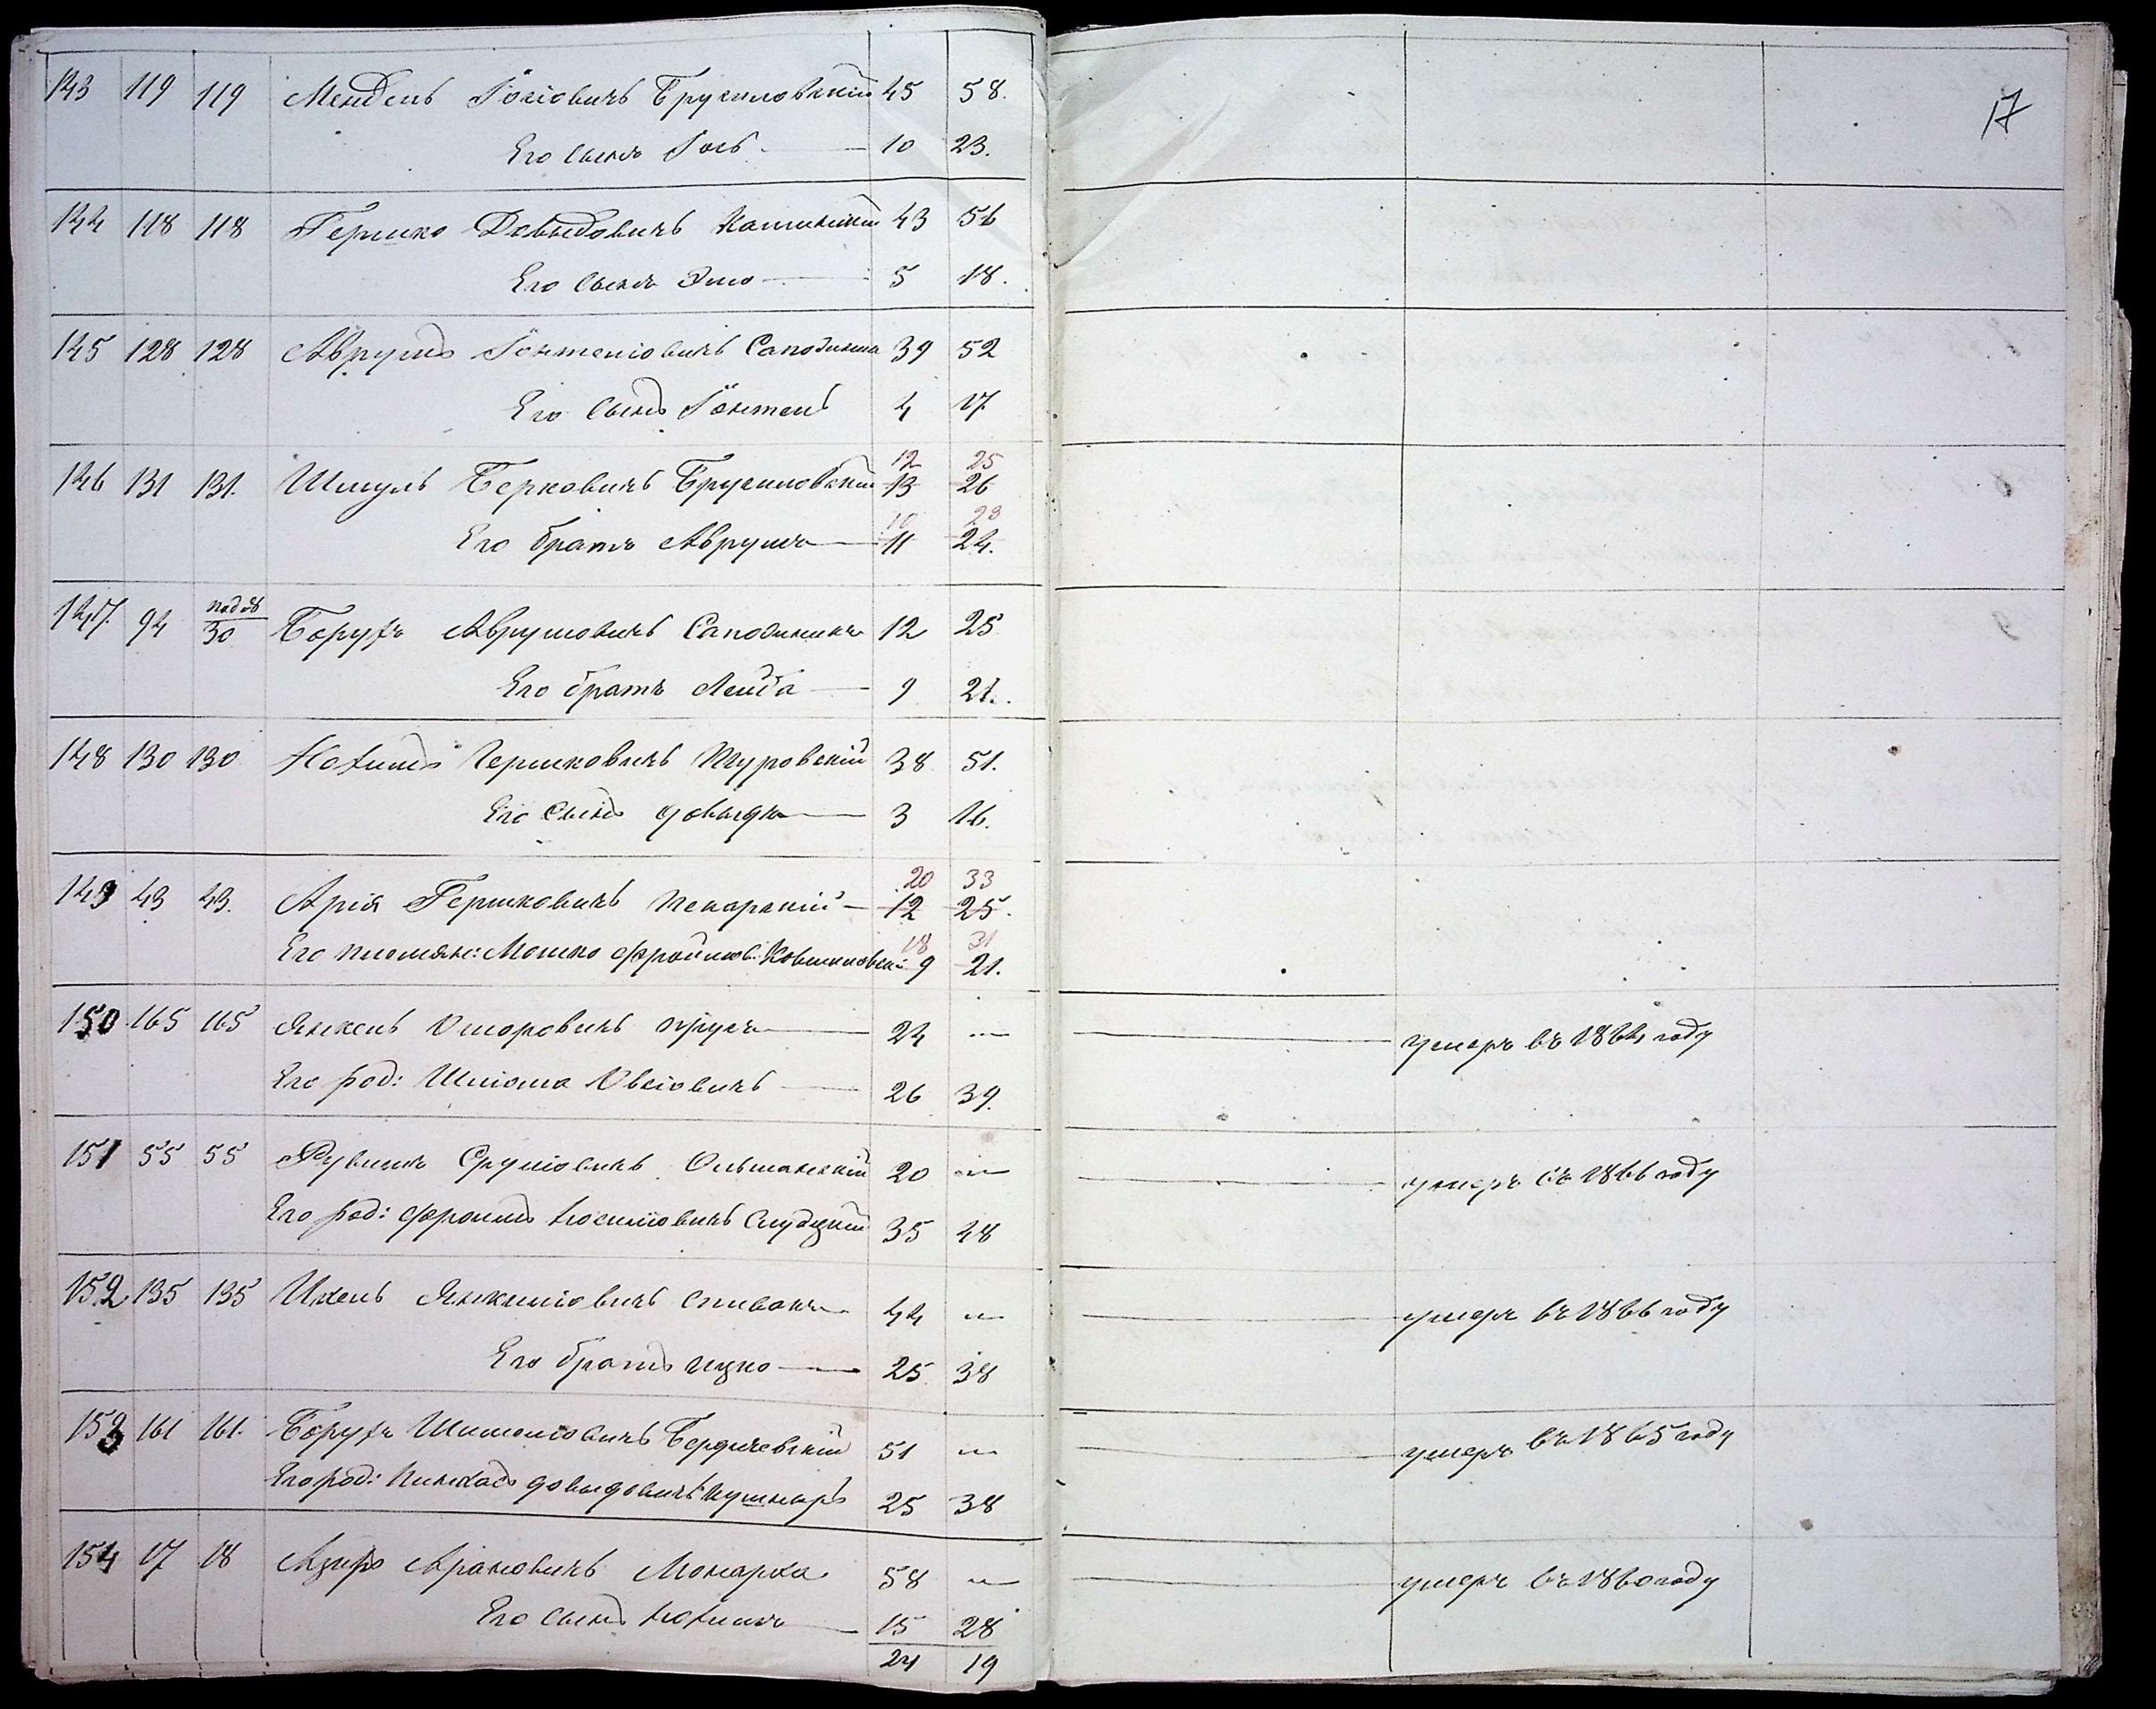 17
143 119 119 Мендель Іосіовичъ Бручиловскій 45 58.
Его сынъ Іось 10 23.
144 118 118 Гершко Довыдовичъ 43 56
Его сынъ 5 18.
145 128 128 Аврумъ Іонтеліовичъ 39 52
Его сынъ Іонтель 4 17
12 25
146 131 131. Шмуль Берковичъ Бручиловскій 13 26
10 23
Его братъ Аврумъ 11 24.
147. 94 30 Борухъ Аврумовичъ 12 25
Его братъ Лейба 9 21.
148 130 130 Нохимъ Гершковичъ Туровскій 38 51.
Его сынъ Довыдъ 3 16.
20 33
149 43 43. Арія Гершковичъ Пекарскій 12 25.
18 31
Его племян: Мошко 9 21.
150 165 165 Янкель Уморовичъ 24 — умеръ въ 1864 году
Его род: Шліома Овсіовичъ 26 39.
151 55 55 Рувинъ Сруліовичъ Ольшанскій 20 — умеръ въ 1866 году
Его род: Фроимъ Слуцкій 35 48
152 135 135 Ихель Янкиліовичъ Спивакъ 44 — умеръ въ 1866 году
Его братъ Ицко 25 38
153 161 161. Борухъ Шимоновичъ Бердичевскій 51 — умеръ въ 1865 году
Его род: Пинхасъ Довыдовичъ Кушниръ 25 38
154 17 18 Арановичъ Монарха 58 — умеръ въ 1860 году
Его сынъ Нохимъ 15 28
24 19